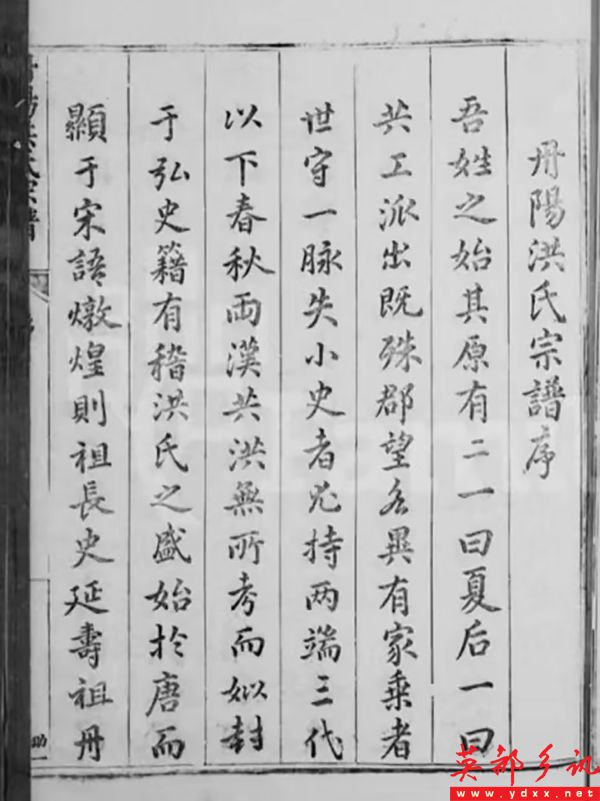 丹陽洪氏宗譜序
吾姓之始其原有二一曰夏后一曰
共工派出既殊郡望各異有家乗者
世守一脉失小史者必持两端三代
以下春秋两漢共洪無所考而姒封
于弘史籍有稽洪氏之盛始於唐而
顯于宋語燉煌則祖長史延壽祖丹
丹陽洪氏宗譜
英都乡讯
www.ydxx.net